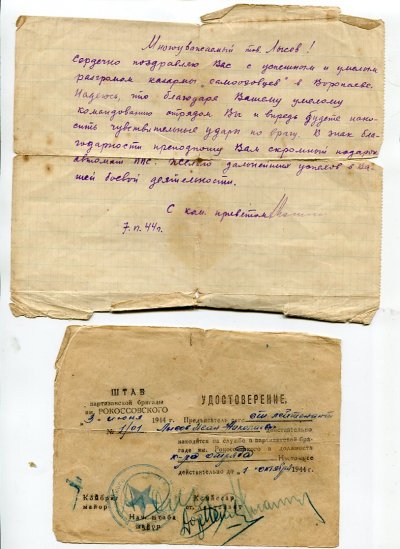 Многоуважаемый тов. Лысов!
Сердечно поздравляю Вас с успешным и умелым
разгромом казармы "самооховцев" в Воропаеве.
Надеюсь, что благодаря Вашему умелому
командованию отрядом Вы и впредь будете нано-
сить чувствительные удары по врагу. В знак бла-
годарности преподношу Вам скромный подарок
автомат ППС. Желаю дальнейших успехов в Ва-
шей боевой деятельности.
С ком. приветом
7.П.44г.
ШТАБ
партизанской бригады
им. РОКОССОВСКОГО
"3" июня 1944 г.
№ 1/01
УДОСТОВЕРЕНИЕ.
Предъявитель сего ст. лейтенант
Лысов действительно
находится на службе в партизанской бри-
гаде им. Рокоссовского в должности
к-ра отряда Настоящее
действительно до "1" октября 1944 г.
Комбриг
майор
Комиссар
ст.
Нач. штаба
майор